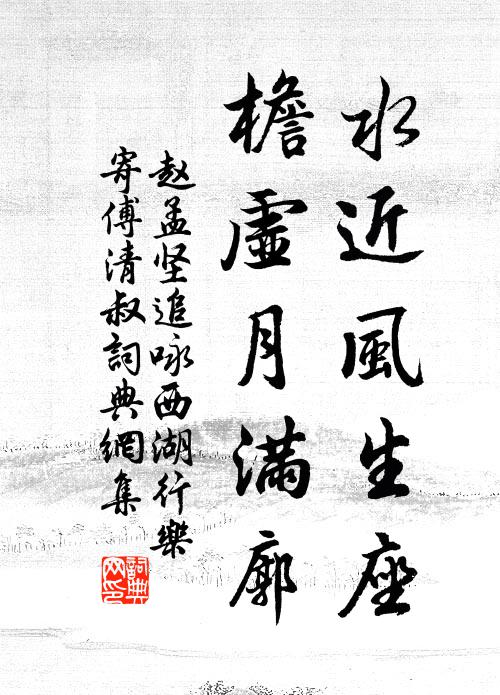 水近風生座
檐虛月滿廓
赵孟坚追咏西湖行樂
寄傅清叔詞典網集
詞典网印